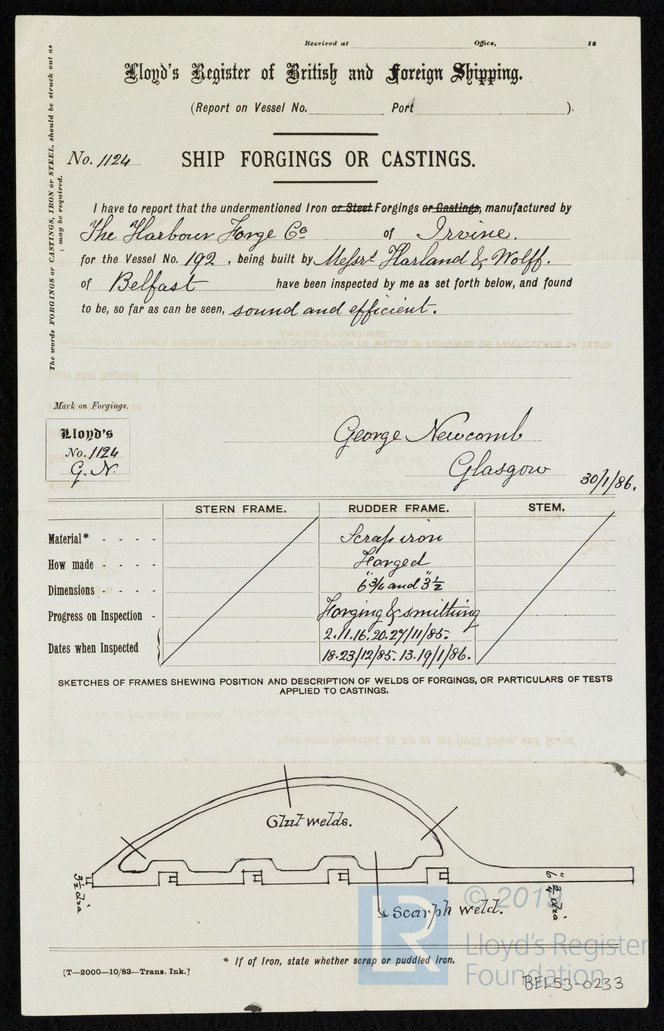 Received at Office, 18
Lloyd's Register of British and Foreign Shipping.
(Report on Vessel No. Port ).
No. 1124 SHIP FORGINGS OR CASTINGS.
The words FORGINGS or CASTINGS, IRON or STEEL, should be struck out as
may be required.
I have to report that the undermentioned Iron or Steel Forgings or Castings, manufactured by
The Harbour Forge Co of Irvine.
for the Vessel No. 192, being built by Messrs Harland & Wolff.
of Belfast have been inspected by me as set forth below, and found
to be, so far as can be seen, sound and efficient.
Mark on Forgings.
Lloyd's
No. 1124
G. N.
George Newcomb
Glasgow 30/1/86.
STERN FRAME. RUDDER FRAME. STEM.
Material* - - - - Scrap iron
How made - - - - Forged
Dimensions - - - - 6 3/4" and 3 1/2"
Progress on Inspection - Forging & smithing
Dates when Inspected 2.11.16.20.27/11/85-
18.23/12/85. 13.19/1/86.
SKETCHES OF FRAMES SHEWING POSITION AND DESCRIPTION OF WELDS OF FORGINGS, OR PARTICULARS OF TESTS
APPLIED TO CASTINGS.
Glut welds.
3 1/2" dia
6 3/4" dia
Scarph weld.
* If of Iron, state whether scrap or puddled iron.
[T—2000—10/83—Trans. Ink.]
© 2019
LR
Lloyd's Register
Foundation
BEL53-0233